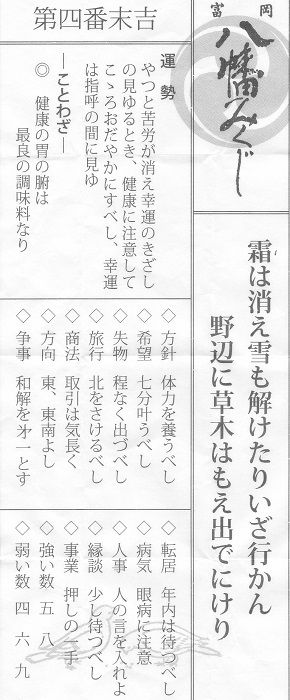 富岡
八幡みくじ
霜は消え雪も解けたりいざ行かん
野辺に草木はもえ出でにけり
第四番末吉
運勢
やつと苦労が消え幸運のきざし
の見ゆるとき、健康に注意して
こゝろおだやかにすべし、幸運
は指呼の間に見ゆ
―ことわざ―
◎ 健康の胃の腑は
最良の調味料なり
◇ 方針 体力を養うべし
◇ 希望 七分叶うべし
◇ 失物 程なく出づべし
◇ 旅行 北をさけるべし
◇ 商法 取引は気長く
◇ 方向 東、東南よし
◇ 争事 和解を㐧一とす
◇ 転居 年内は待つべし
◇ 病気 眼病に注意
◇ 人事 人の言を入れよ
◇ 縁談 少し待つべし
◇ 事業 押しの一手
◇ 強い数 五 八
◇ 弱い数 四 六 九